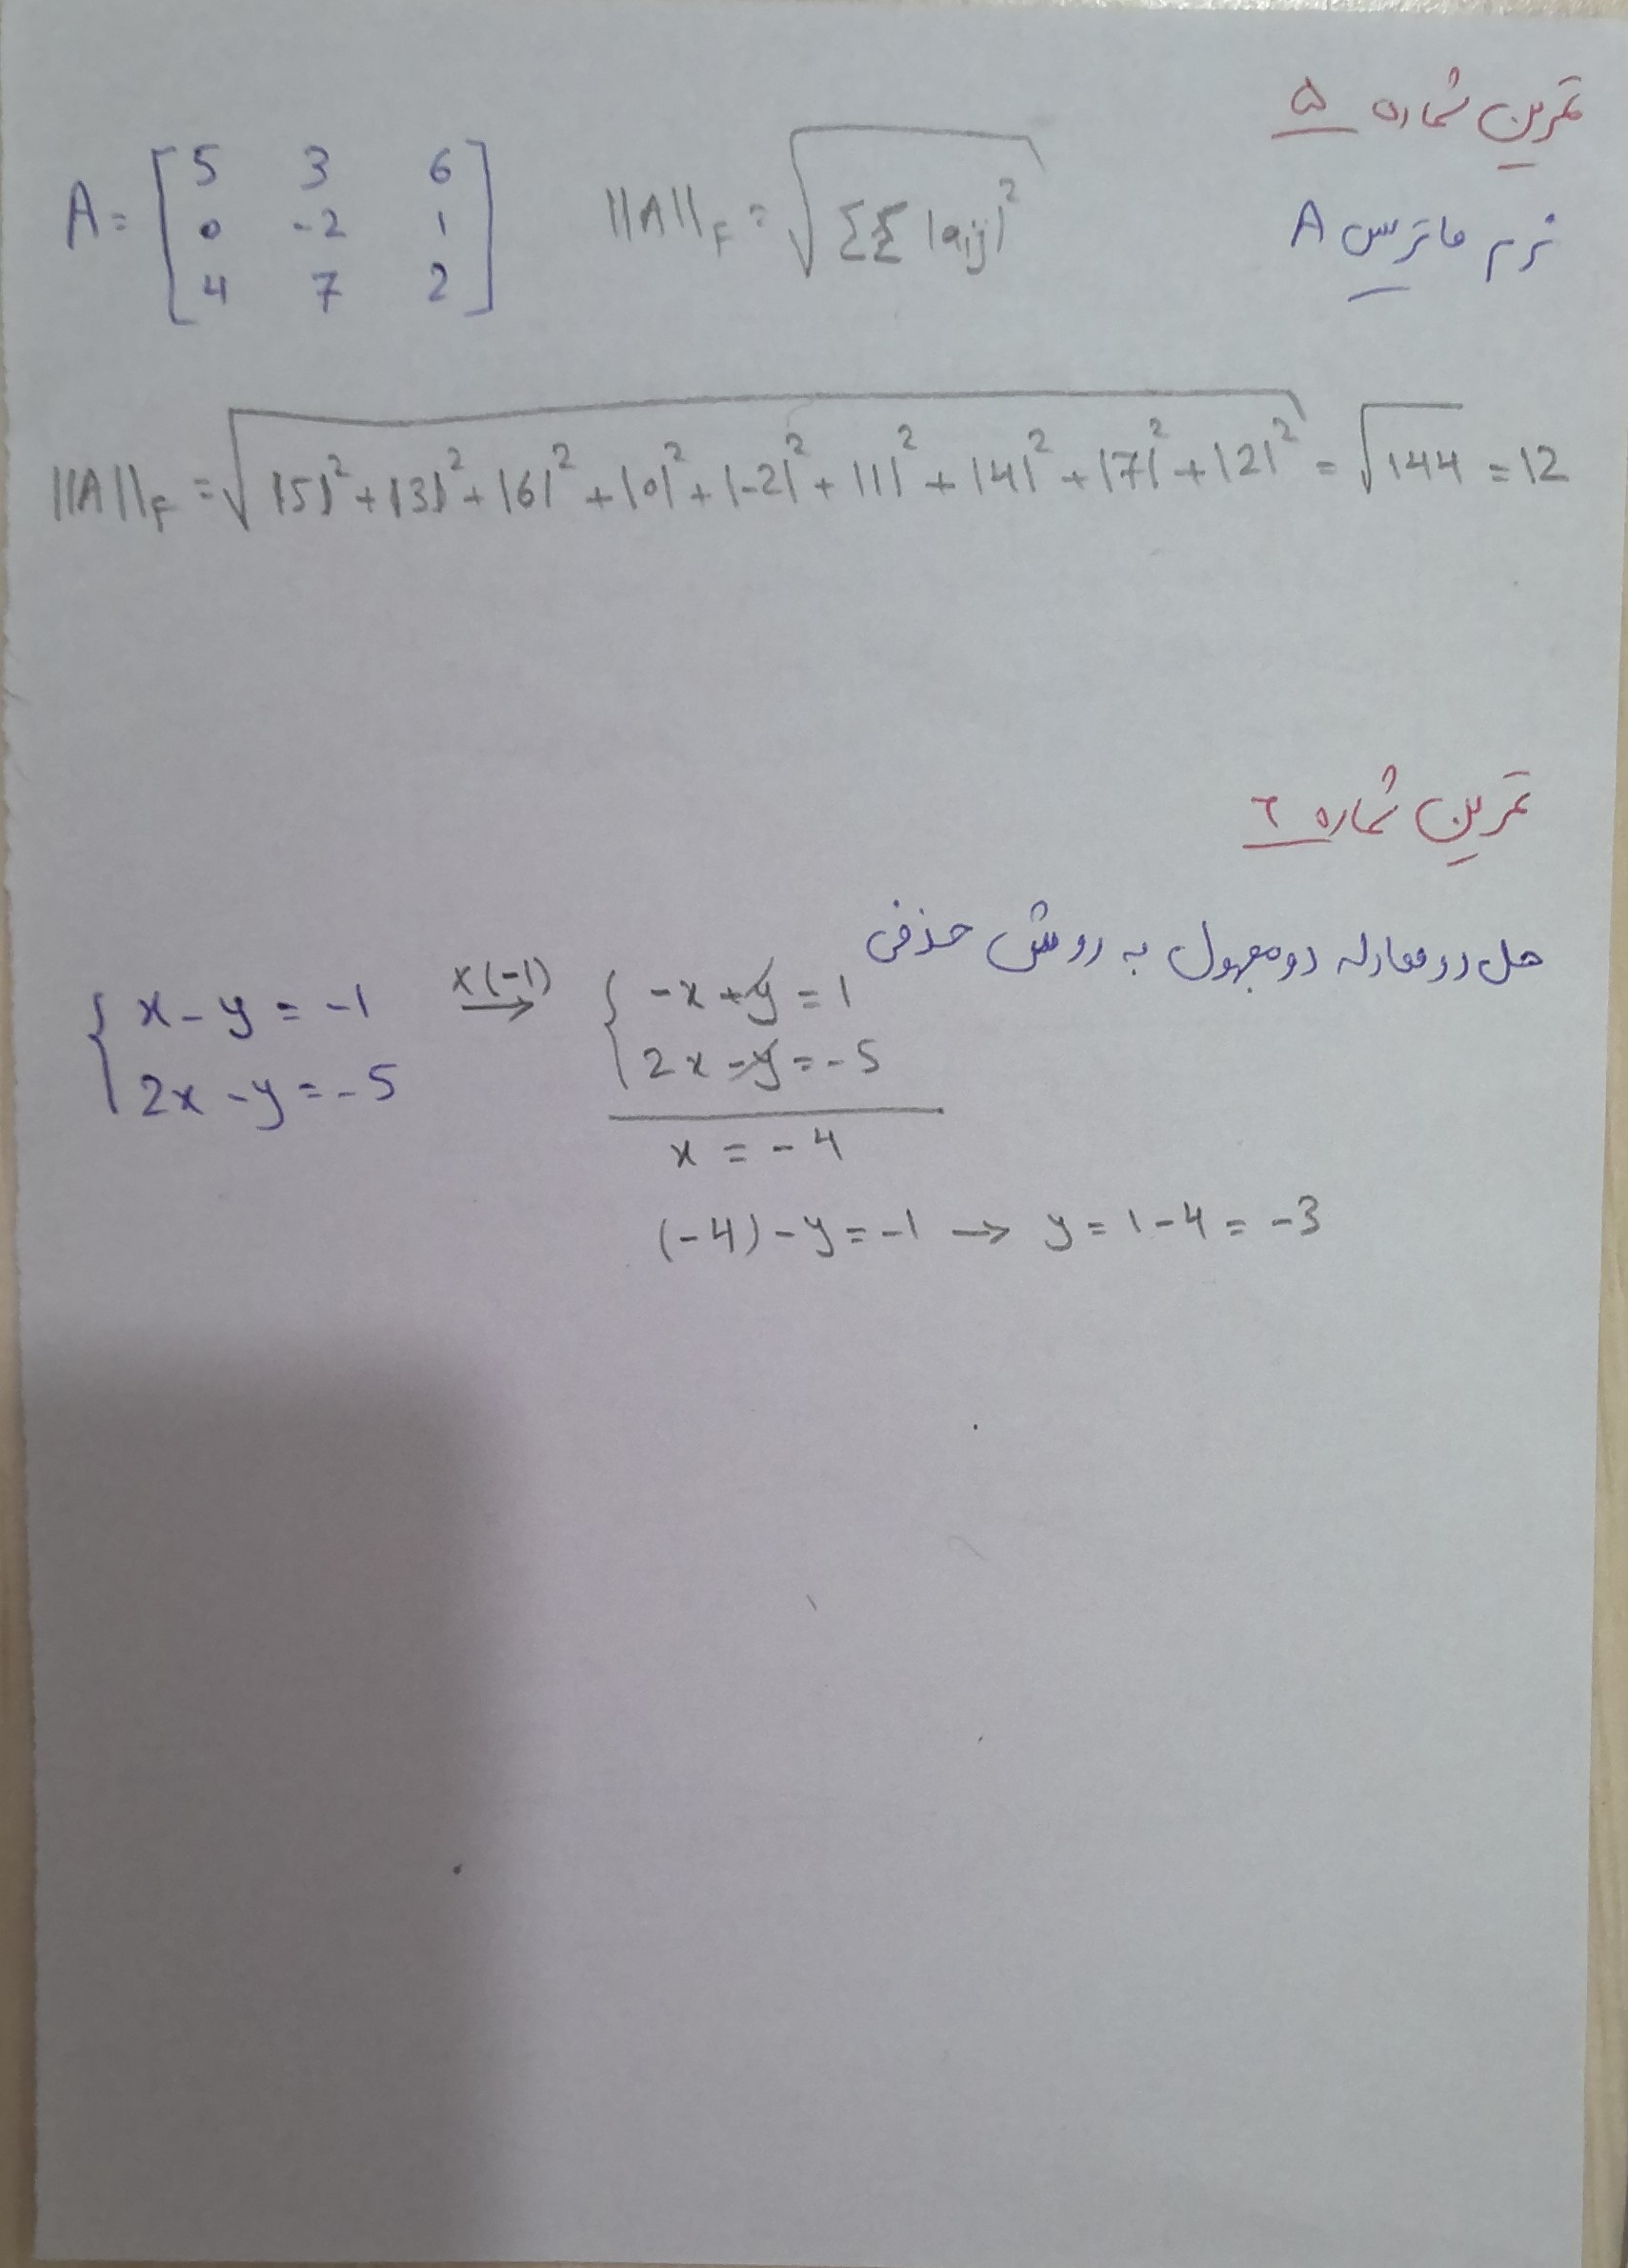 تمرین شماره ۵
نرم ماتریس A
A = [5 3 6
0 -2 1
4 7 2]
||A||F = √ΣΣ |aij|²
||A||F = √|5|² + |3|² + |6|² + |0|² + |-2|² + |1|² + |4|² + |7|² + |2|² = √144 = 12
تمرین شماره ٦
حل دو معادله دو مجهول به روش حذفی
{ x - y = -1
2x - y = -5
x(-1) →
{ -x + y = 1
2x - y = -5
x = -4
(-4) - y = -1 → y = 1 - 4 = -3